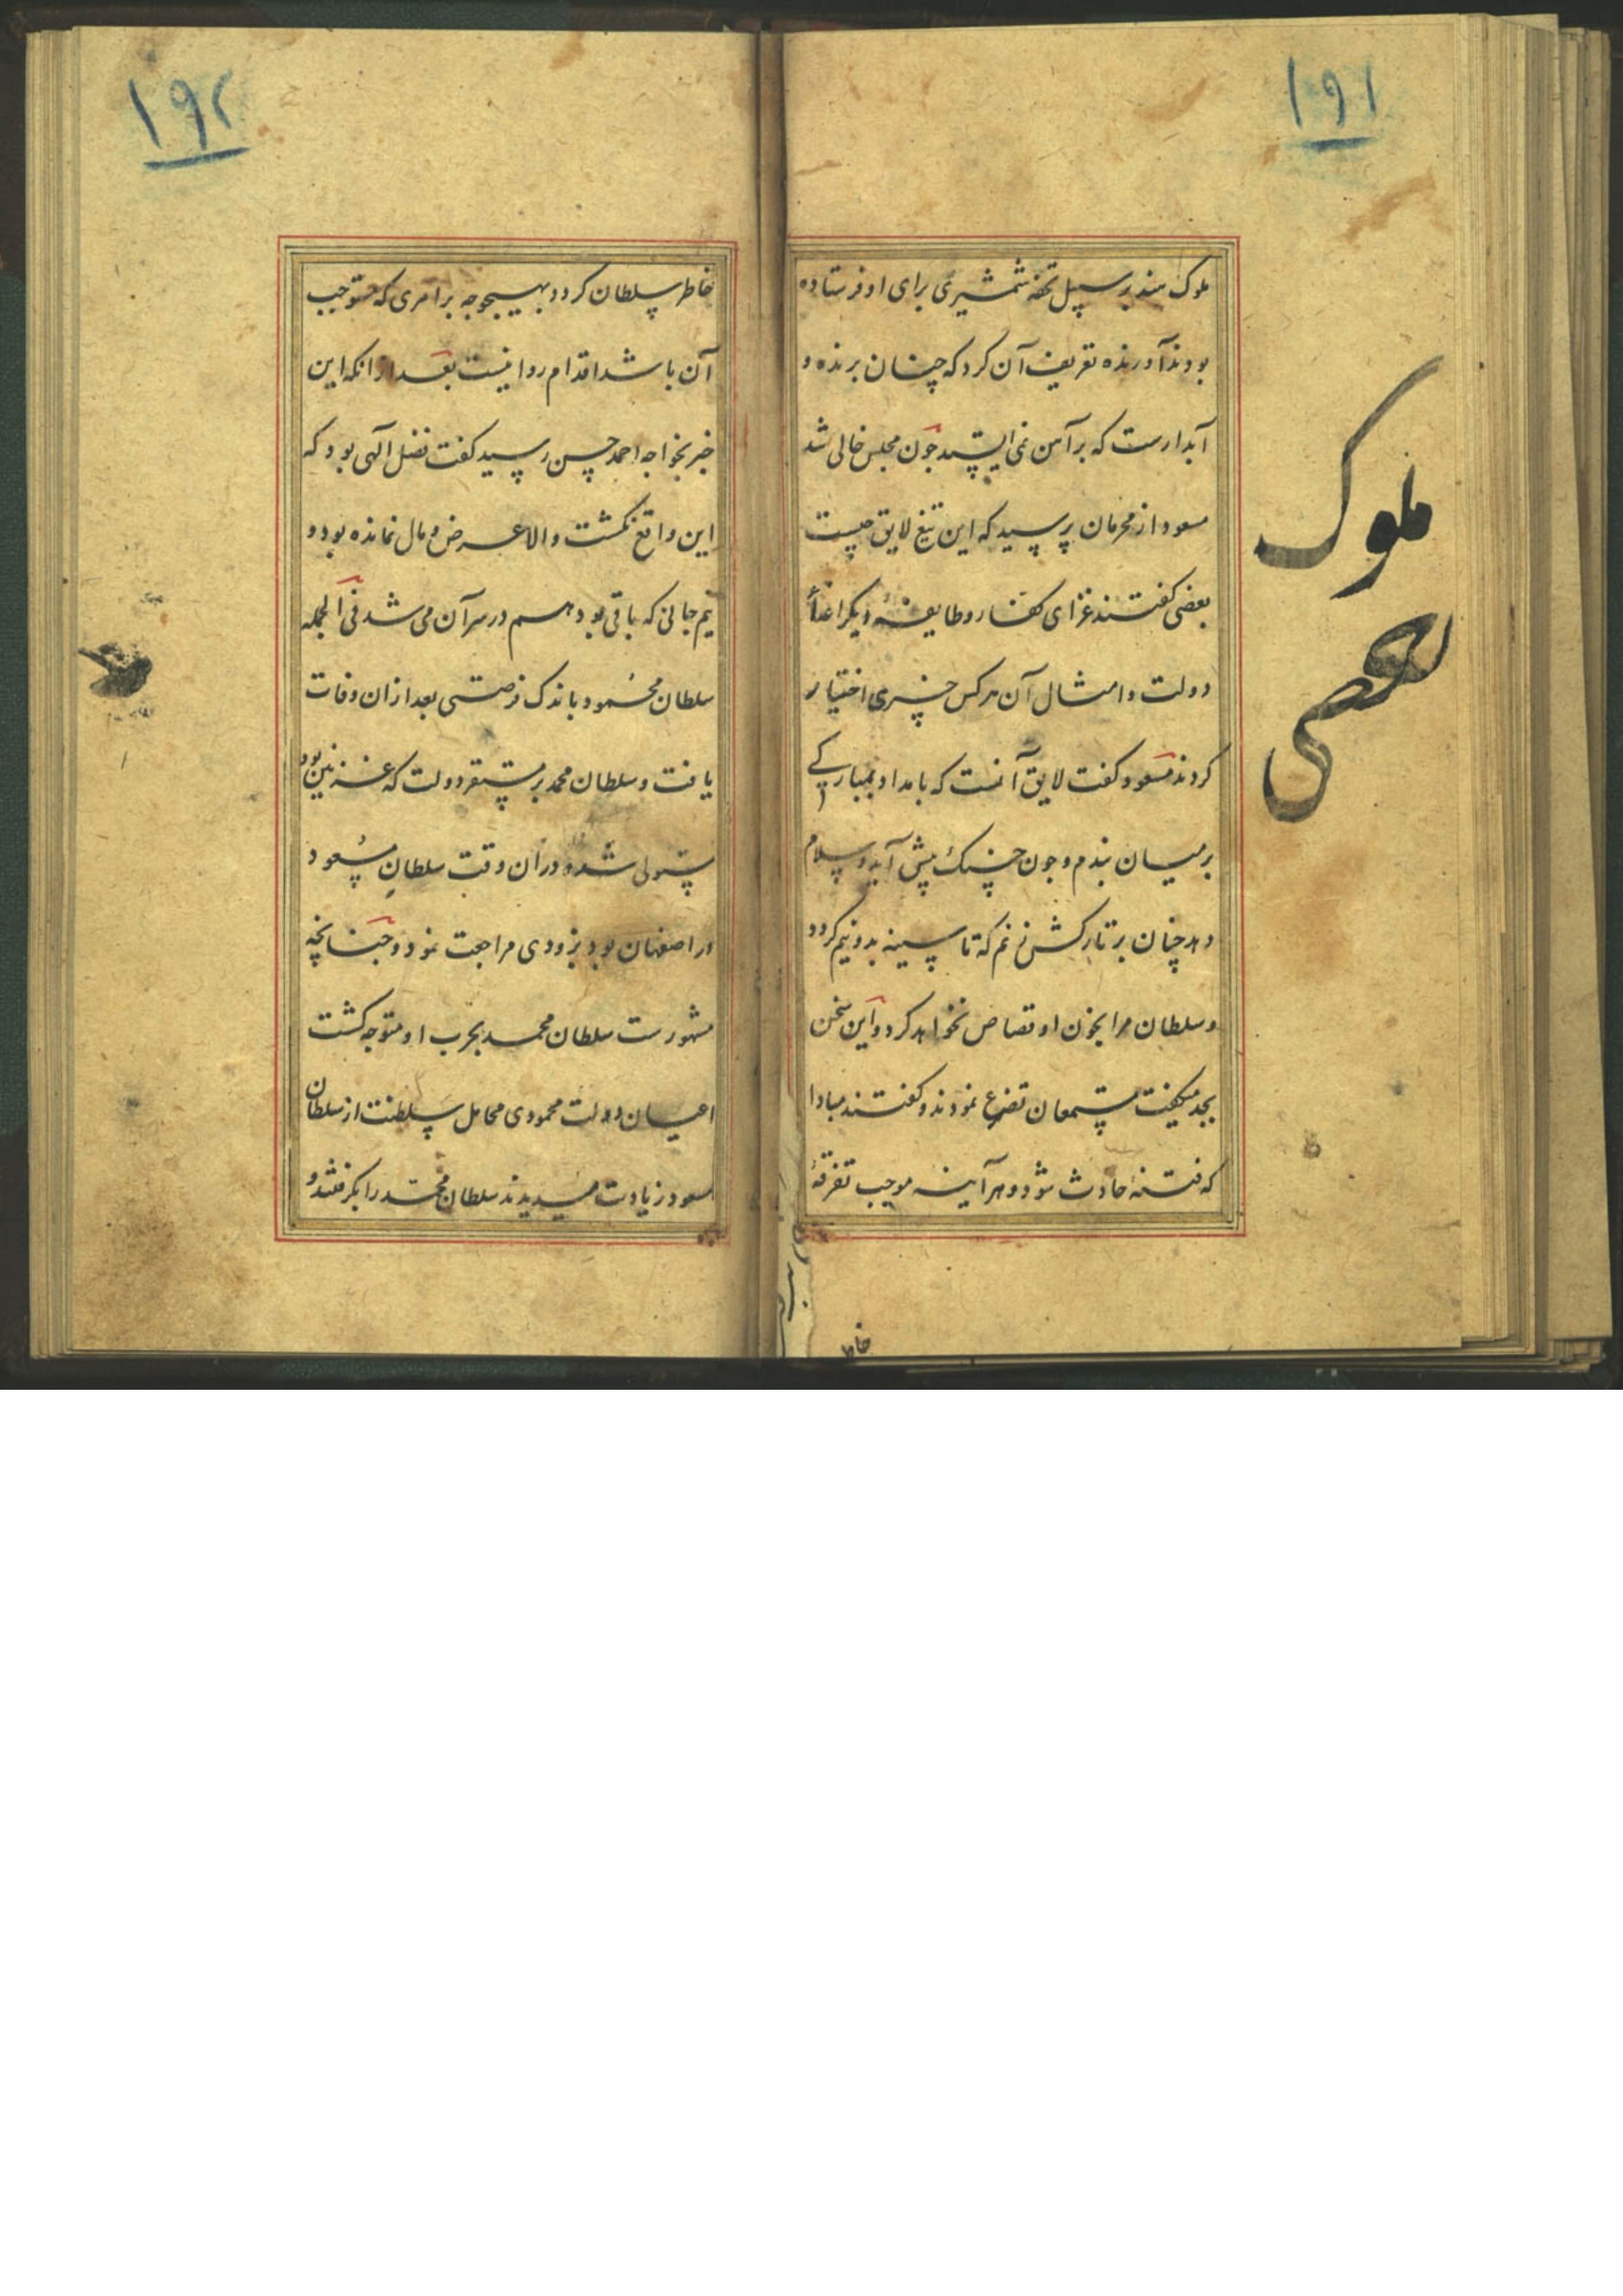 ۱۹۱
ملوک هند بر سبیل تحفه شمشیری برای او فرستاده
بودند آورنده تعریف آن کرد که چنان برنده و
آبدارست که بر آهن نمی ایستد چون مجلس خالی شد
مسعود از محرمان پرسید که این تیغ لایق چیست
بعضی گفتند غزای کفار و طایفهٔ دیگر اعداء
دولت و امثال آن هر کس چیزی اختیار
کردند مسعود گفت لایق آنست که بامداد بمبارکی
بر میان بندم و چون حسنک پیش آید و سلام
دهد چنان بر تارکش زنم که تا سینه بدو نیم کردد
و سلطان مرا بخون او قصاص نخواهد کرد و این سخن
بجد میکفت مستمعان تضرع نمودند و کفتند مبادا
که فتنهٔ حادث شود و هر آینه موجب تفرقهٔ
ملوک
خاطر
۱۹۲
خاطر سلطان کردد بهیچوجه بر امری که مستوجب
آن باشد اقدام روا نیست بعد از انکه این
خبر بخواجه احمد حسن رسید کفت فضل آلهی بود که
این واقع نکشت و الا عرض و مال نمانده بود و
نیم جانی که باقی بود هم در سر آن می شد فی الجمله
سلطان محمود باندک فرصتی بعد از ان وفات
یافت و سلطان محمد بر مستقر دولت که غزنین بود
مستولی شد و در ان وقت سلطان مسعود
در اصفهان بود بزودی مراجعت نمود و چنانچه
مشهورست سلطان محمد بحرب او متوجه کشت
اعیان دولت محمودی محامل سلطنت از سلطان
مسعود زیادت میدیدند سلطان محمد را بکرفتند و